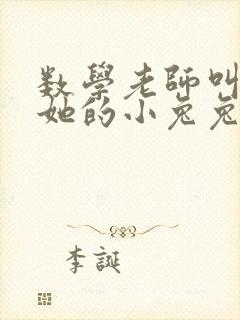 数學老師叫
她的小兔兔
李誕